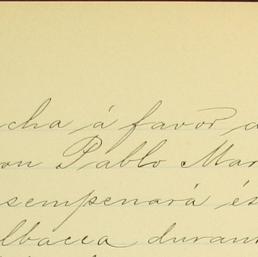 cha á favor d
on Pablo Mar
sempenará és
lbacea durant